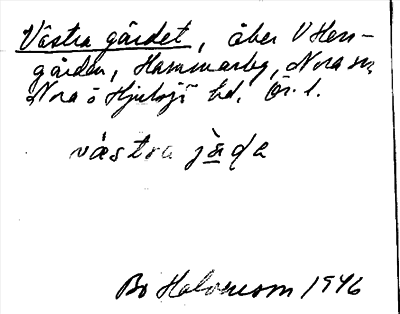 Västra gärdet, åker V Herr-
gården, Hammarby, Nora sn,
Nora o Hjulsjö hd. Ör. l.
västra jäḍe
Bo Halvarson 1946